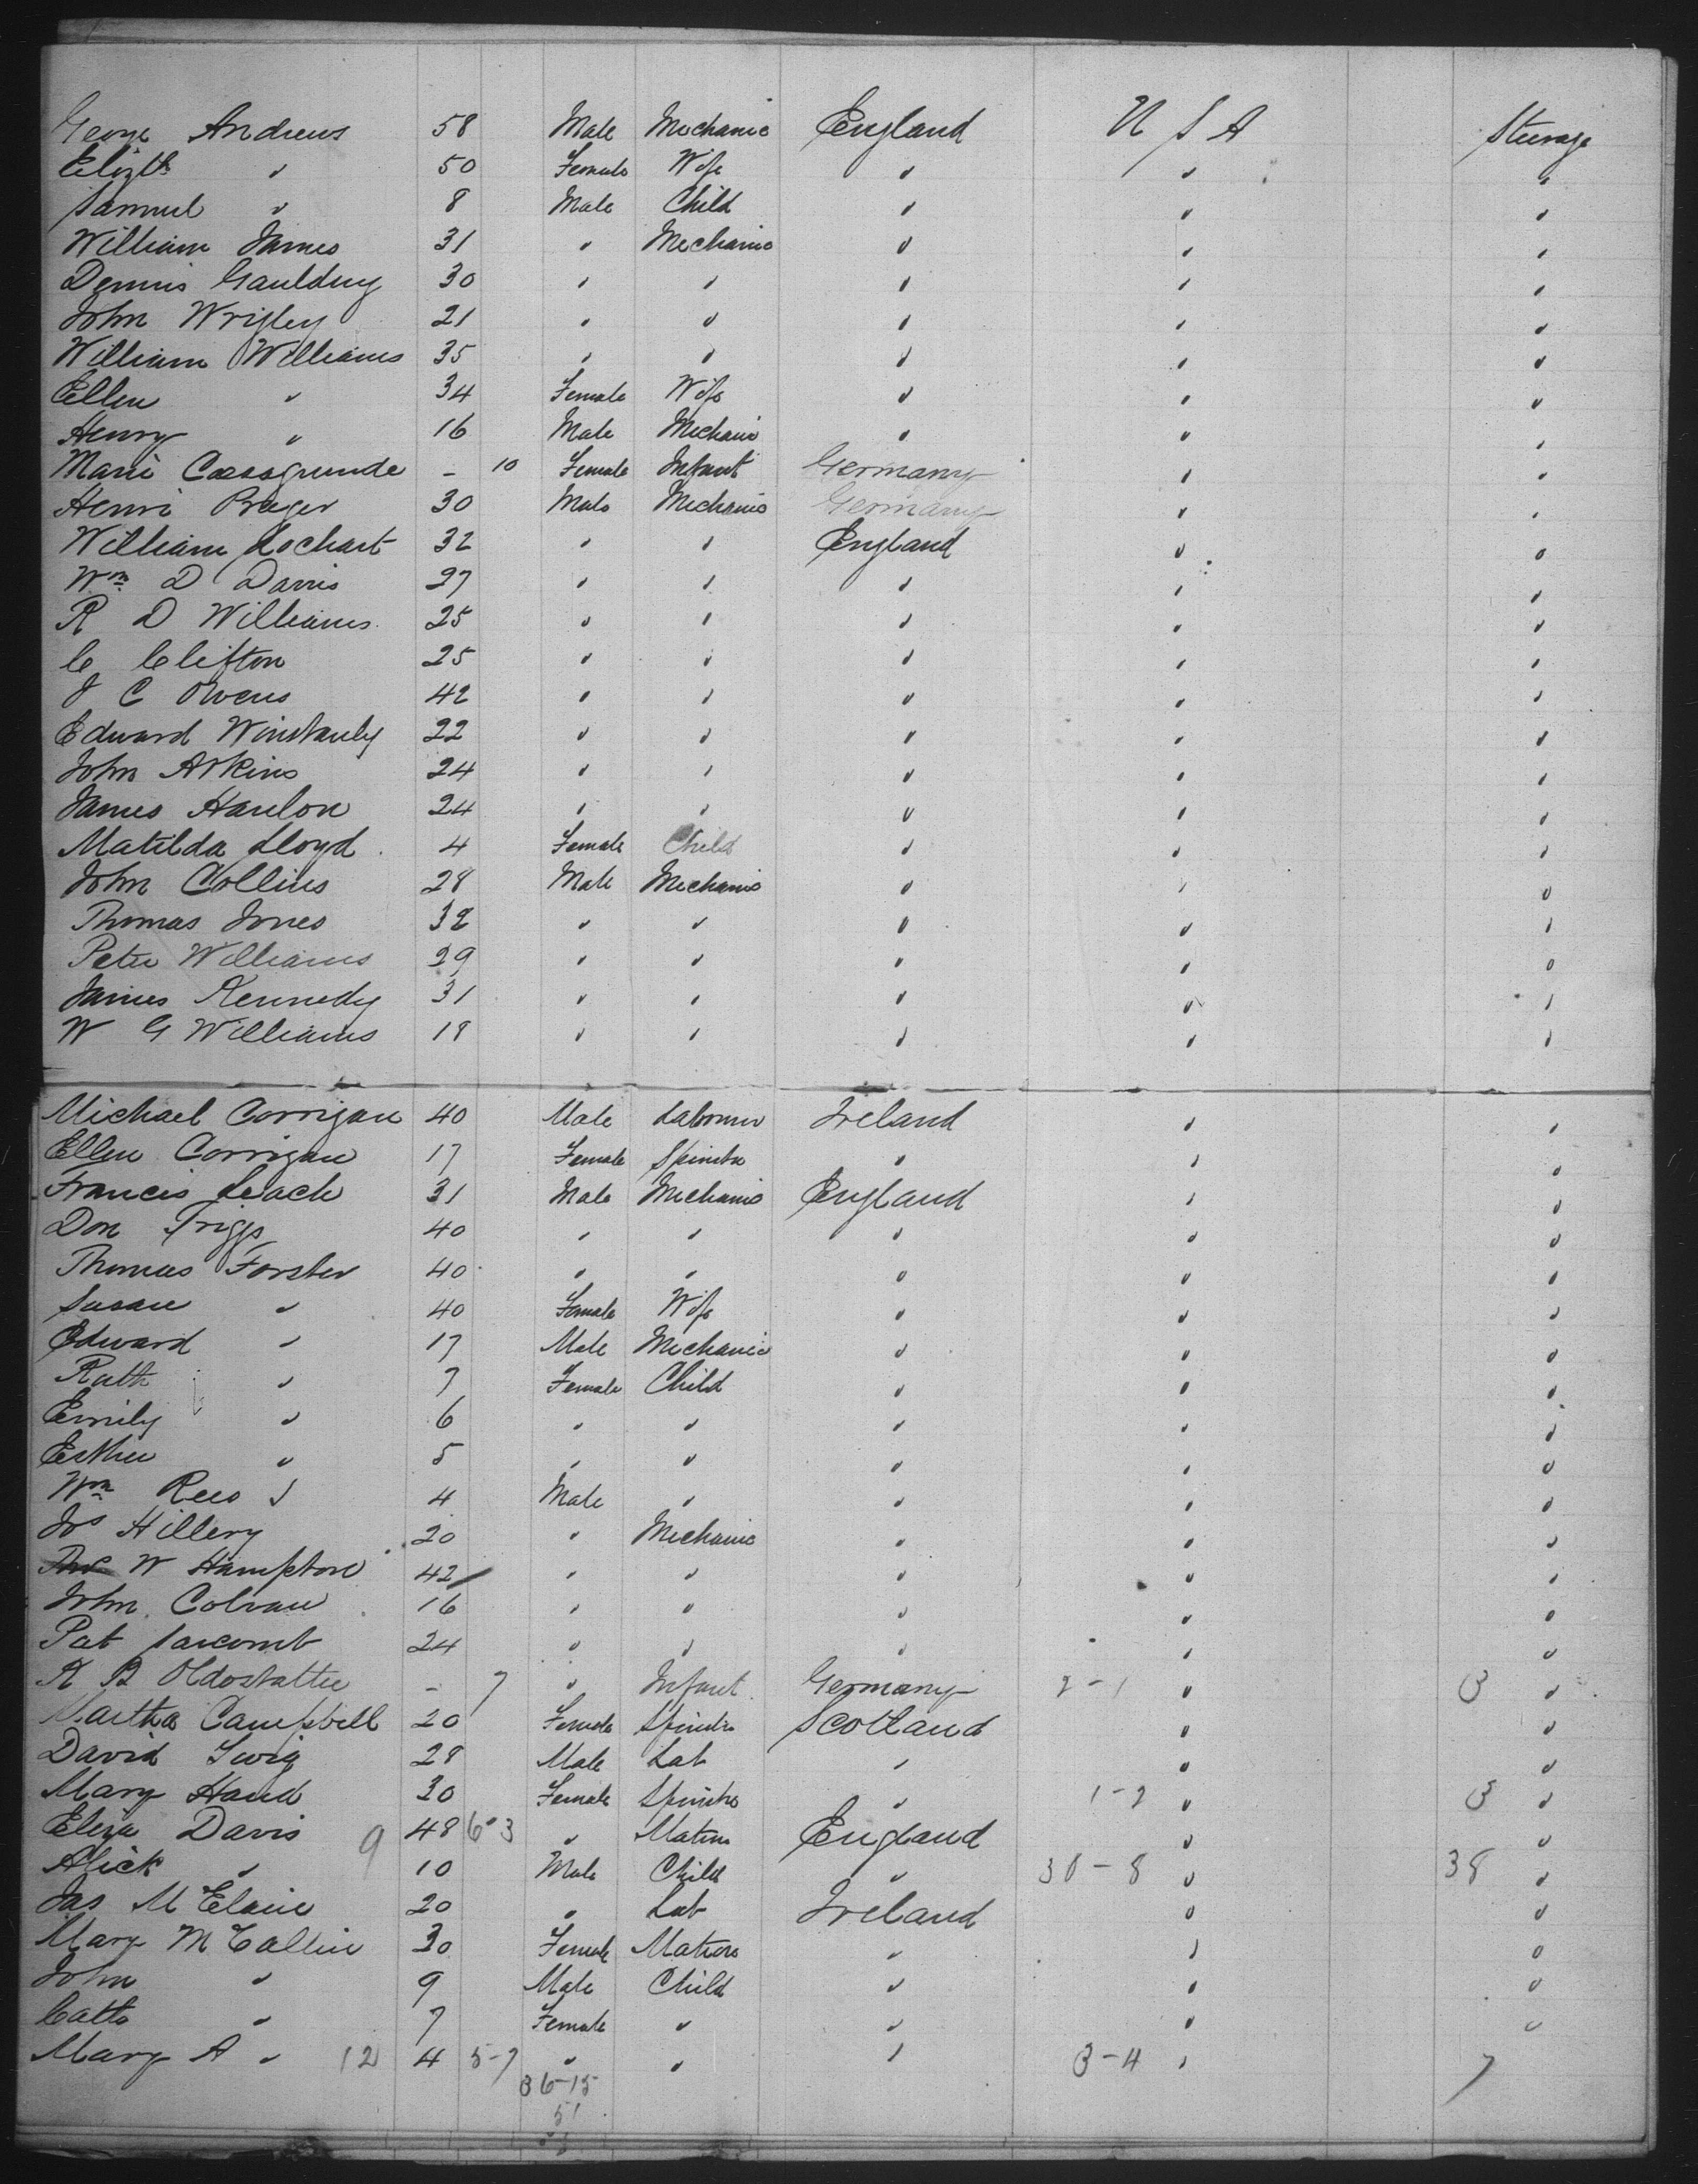 George Andrews 58 Male Mechanic England U S A Steerage
Elizth " 50 Female Wife " " "
Samuel " 8 Male Child " " "
William James 31 " Mechanic " " "
Dennis Gaulding 30 " " " " "
John Wrigley 21 " " " " "
William Williams 35 " " " " "
Ellen " 34 Female Wife " " "
Henry " 16 Male Mechanic " " "
Marie - 10 Female Infant Germany " "
Henri Prager 30 Male Mechanic Germany " "
William Lochart 32 " " England " "
Wm D Davis 27 " " " " "
R D Williams 25 " " " " "
C Clifton 25 " " " " "
J C Owens 42 " " " " "
Edward Winstanly 22 " " " " "
John Atkins 24 " " " " "
James Hanlon 24 " " " " "
Matilda Lloyd 4 Female Child " " "
John Collins 28 Male Mechanic " " "
Thomas Jones 32 " " " " "
Peter Williams 29 " " " " "
James Kennedy 31 " " " " "
W G Williams 18 " " " " "
Michael Corrigan 40 Male Labourer Ireland " "
Ellen Corrigan 17 Female Spinster " " "
Francis Leach 31 Male Mechanic England " "
Don Triggs 40 " " " " "
Thomas Forster 40 " " " " "
Susan " 40 Female Wife " " "
Edward " 17 Male Mechanic " " "
Ruth " 7 Female Child " " "
Emily " 6 " " " " "
Esther " 5 " " " " "
Wm Rees J 4 Male " " " "
Js Hillery 20 " Mechanic " " "
W Hampton 42 " " " " "
John Colvan 16 " " " " "
Pat 24 " " " " "
R B - 7 " Infant Germany 2-1 " 3 "
Martha Campbell 20 Female Spinster Scotland " "
David 28 Male Lab " " "
Mary Hand 30 Female Spinster " 1-2 " 3 "
Eliza Davis 9 48 6-3 " Matron England " "
Alick " 10 Male Child " 30-8 " 38 "
Jas McElaine 20 " Lab Ireland " "
Mary McCallin 30 Female Matron " " "
John " 9 Male Child " " "
Cath " 7 Female " " " "
Mary A " 12 4 5-7 " " " 3-4 " 7
36-15
51